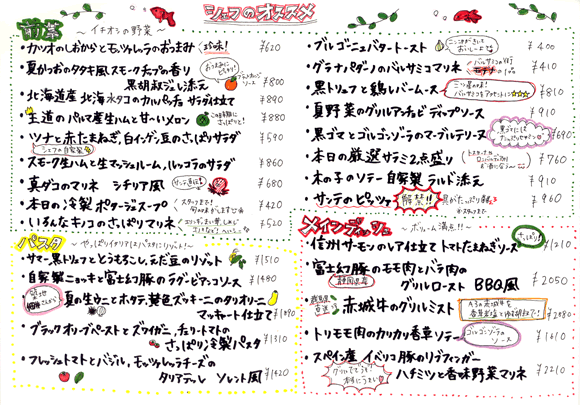 シェフのオススメ
前菜
～イチオシの野菜～
・カツオのしおからとモッツァレラのおつまみ 珍味! ¥620
・夏がつおのタタキ風 スモークチップの香り
黒胡椒ジュレ添え ¥800
おつまみにピッタリ!
・北海道産 北海水タコのカルパッチョ サラダ仕立て ¥890
・王道のパルマ産生ハムと甘~いメロン ¥880
・ツナと赤たまねぎ、白インゲン豆のさっぱりサラダ ¥590
シェフの自家製
・スモーク生ハムと生マッシュルーム、ルッコラのサラダ ¥860
・真ダコのマリネ シチリア風 ¥680
・本日の冷製ポタージュスープ ¥420
・いろんなキノコのさっぱりマリネ ¥520
・ブルゴーニュバタートースト ¥400
・グラナパダーノのバルサミコマリネ ¥410
・黒トリュフと鶏レバームース ¥810
・夏野菜のグリルアンチョビディップソース ¥910
・黒ゴマとゴルゴンゾーラのマーブルテリーヌ ¥690
・本日の厳選サラミ2点盛り ¥760
・木の子のソテー 自家製ラルド添え ¥910
・サンテのピッツァ 解禁!! ¥960
パスタ
～やっぱりイタリアは!パスタにリゾット!～
・サマー黒トリュフととうもろこし、えだ豆のリゾット ¥1510
・自家製ニョッキと富士幻豚のラグービアンコソース ¥1480
・夏の生ウニとホタテ、黄色ズッキーニのタリオリーニ
マッキャート仕立て ¥1690
・ブラックオリーブペーストとズワイガニ、チェリートマトの
さっぱり冷製パスタ ¥1310
・フレッシュトマトとバジル、モッツァレラチーズの
タリアテッレ ソレント風 ¥1420
メインディッシュ
～ボリューム満点!!～
・信州サーモンのレア仕立て トマトたまねぎソース ¥1210
さっぱり!
・富士幻豚のモモ肉とバラ肉の
グリルロースト BBQ風 ¥2050
静岡県産
・赤城牛のグリルミスト ¥2080
・トリモモ肉のカリカリ香草ソテー ¥1410
ゴルゴンゾーラのソース
・スペイン産 イベリコ豚のリブフィンガー
ハチミツと香味野菜マリネ ¥1410